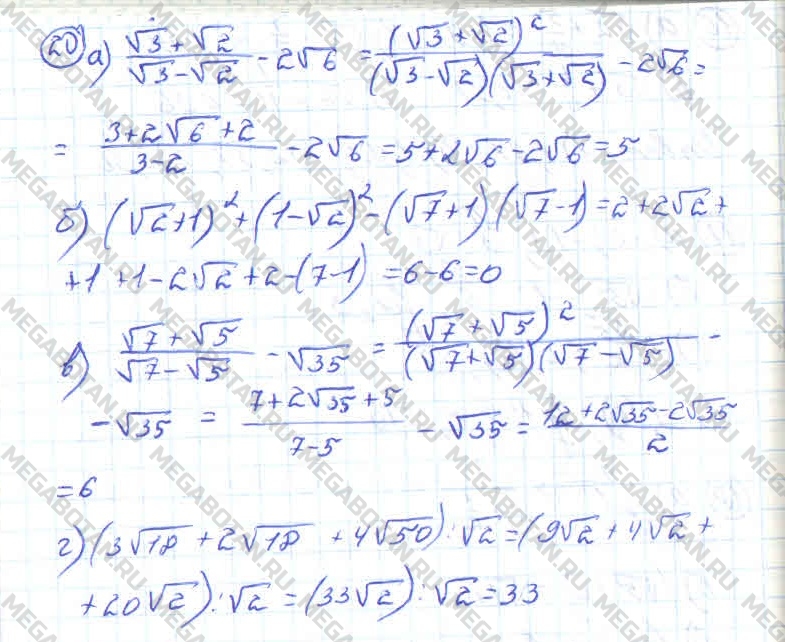 20 а) (√3 + √2)/(√3 - √2) - 2√6 = (√3 + √2)²/((√3 - √2)(√3 + √2)) - 2√6 =
= (3 + 2√6 + 2)/(3 - 2) - 2√6 = 5 + 2√6 - 2√6 = 5
б) (√2 + 1)² + (1 - √2)² - (√7 + 1)(√7 - 1) = 2 + 2√2 +
+ 1 + 1 - 2√2 + 2 - (7 - 1) = 6 - 6 = 0
в) (√7 + √5)/(√7 - √5) - √35 = (√7 + √5)²/((√7 + √5)(√7 - √5)) -
- √35 = (7 + 2√35 + 5)/(7 - 5) - √35 = (12 + 2√35 - 2√35)/2
= 6
г) (3√18 + 2√18 + 4√50) : √2 = (9√2 + 4√2 +
+ 20√2) : √2 = (33√2) : √2 = 33
MEGABOTAN.RU